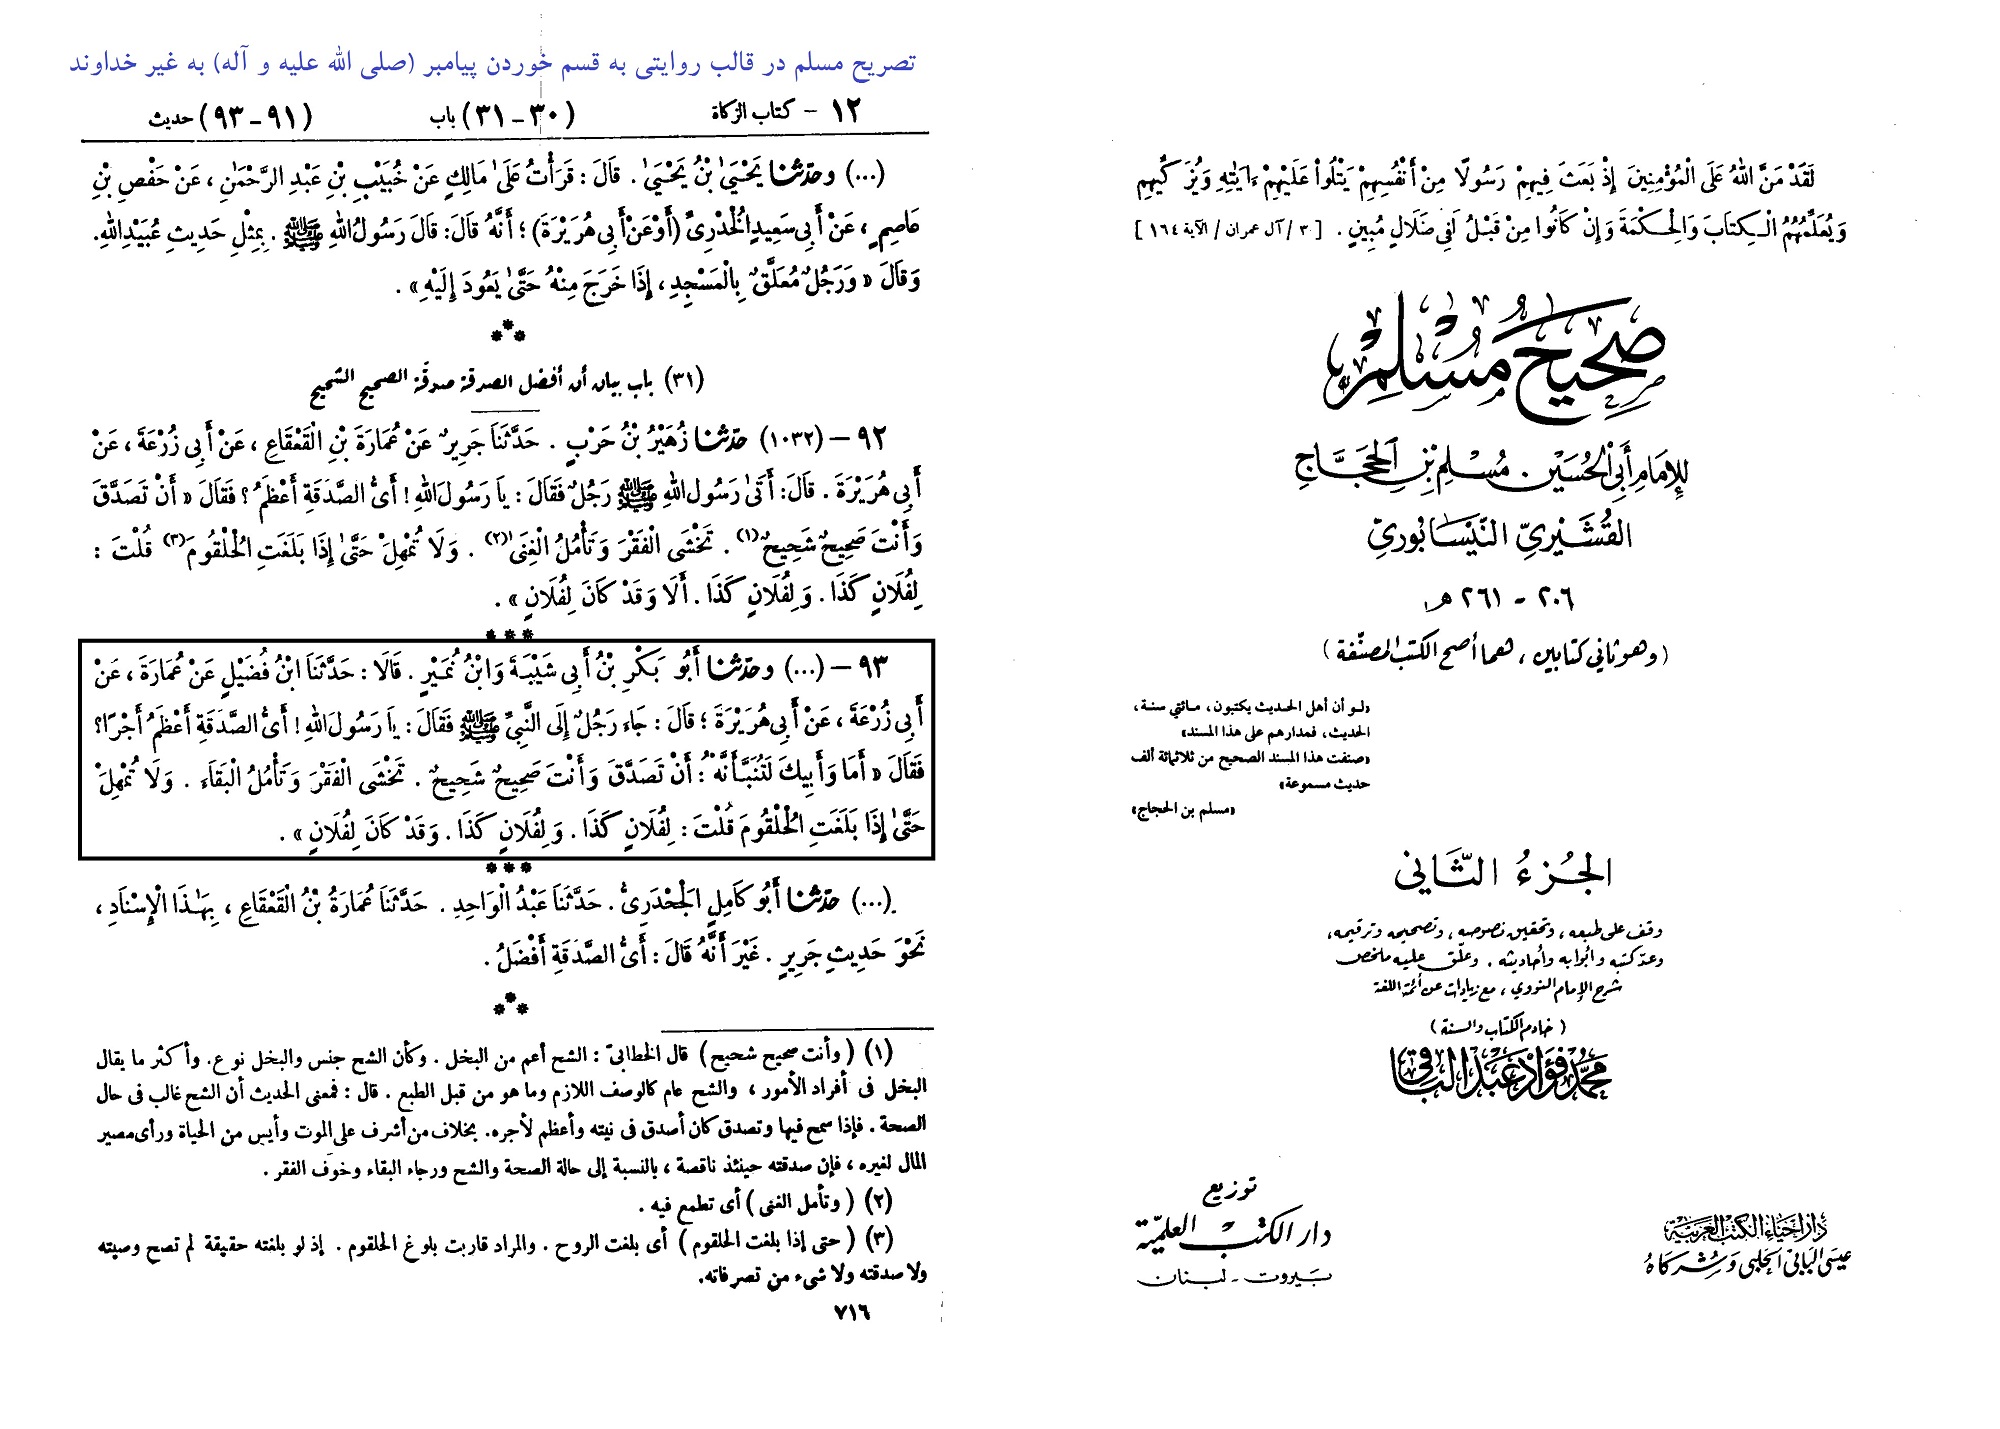 لَقَدْ مَنَّ اللهُ عَلَى الْمُؤْمِنِينَ إِذْ بَعَثَ فِيهِمْ رَسُولًا مِنْ أَنْفُسِهِمْ يَتْلُواْ عَلَيْهِمْ ءَايَٰتِهِ وَيُزَكِّيهِمْ
وَيُعَلِّمُهُمُ الْكِتَابَ وَالْحِكْمَةَ وَإِنْ كَانُوا مِنْ قَبْلُ لَفِي ضَلَالٍ مُبِينٍ . [ ٣ / آل عمران / الآية ١٦٤ ]
صَحِيحُ مُسْلِمٍ
لِلإِمَامِ أَبِي الْحُسَيْنِ . مُسْلِمِ بْنِ الْحَجَّاجِ
القُشَيْرِيِّ النَّيْسَابُورِيِّ
٢٠٦ - ٢٦١ هـ
( وهو ثاني كتابين ، هما أصح الكتب المصنّفة )
«لو أن أهل الحديث يكتبون، مائتي سنة،
الحديث، فمدارهم على هذا المسند»
«صنفت هذا المسند الصحيح من ثلاثمائة ألف
حديث مسموعة»
«مسلم بن الحجاج»
الجُزءُ الثَّانِي
وقف على طبعه ، وتحقيق نصوصه ، وتصحيحه وترقيمه،
وعدّ كتبه وأبوابه وأحاديثه . وعلّق عليه ملخص
شرح الإمام النووي ، مع زيادات عن أئمة اللغة
( خادم الكتاب والسنة )
مُحَمَّد فُؤَاد عَبْد البَاقِي
توزيع
دار الكتب العلميّة
بَيروت - لبنان
دَارُ إِحْيَاءِ الْكُتُبِ الْعَرَبِيَّةِ
عيسى البابي الحلبي وشُركاهُ
تصریح مسلم در قالب روایتی به قسم خوردن پیامبر (صلی الله علیه و آله) به غیر خداوند
١٢ – كتاب الزكاة (٣٠ – ٣١) باب (٩١ – ٩٣) حديث
(...) وحَدَّثَنَا يَحْيَىٰ بْنُ يَحْيَىٰ . قَالَ : قَرَأْتُ عَلَىٰ مَالِكٍ عَنْ خُبَيْبِ بْنِ عَبْدِ الرَّحْمَٰنِ ، عَنْ حَفْصِ بْنِ
عَاصِمٍ ، عَنْ أَبِي سَعِيدٍ الْخُدْرِيِّ (أَوْ عَنْ أَبِي هُرَيْرَةَ) ؛ أَنَّهُ قَالَ: قَالَ رَسُولُ اللهِ ﷺ . بِمِثْلِ حَدِيثِ عُبَيْدِ اللهِ.
وَقَالَ « وَرَجُلٌ مُعَلَّقٌ بِالْمَسْجِدِ ، إِذَا خَرَجَ مِنْهُ حَتَّىٰ يَعُودَ إِلَيْهِ » .
(٣١) باب بيان أن أفضل الصدقة صدقة الصحيح الشحيح
٩٢ – (١٠٣٢) حَدَّثَنَا زُهَيْرُ بْنُ حَرْبٍ . حَدَّثَنَا جَرِيرٌ عَنْ عُمَارَةَ بْنِ الْقَعْقَاعِ ، عَنْ أَبِي زُرْعَةَ ، عَنْ
أَبِي هُرَيْرَةَ . قَالَ: أَتَىٰ رَسُولَ اللهِ ﷺ رَجُلٌ فَقَالَ : يَا رَسُولَ اللهِ ! أَيُّ الصَّدَقَةِ أَعْظَمُ ؟ فَقَالَ « أَنْ تَصَدَّقَ
وَأَنْتَ صَحِيحٌ شَحِيحٌ(١) . تَخْشَى الْفَقْرَ وَتَأْمُلُ الْغِنَىٰ(٢) . وَلَا تُمْهِلْ حَتَّىٰ إِذَا بَلَغَتِ الْحُلْقُومَ(٣) قُلْتَ :
لِفُلَانٍ كَذَا . وَلِفُلَانٍ كَذَا . أَلَا وَقَدْ كَانَ لِفُلَانٍ » .
٩٣ – (...) وحَدَّثَنَا أَبُو بَكْرِ بْنُ أَبِي شَيْبَةَ وَابْنُ نُمَيْرٍ . قَالَا : حَدَّثَنَا ابْنُ فُضَيْلٍ عَنْ عُمَارَةَ ، عَنْ
أَبِي زُرْعَةَ ، عَنْ أَبِي هُرَيْرَةَ ؛ قَالَ : جَاءَ رَجُلٌ إِلَى النَّبِيِّ ﷺ فَقَالَ : يَا رَسُولَ اللهِ ! أَيُّ الصَّدَقَةِ أَعْظَمُ أَجْرًا؟
فَقَالَ « أَمَا وَأَبِيكَ لَتُنَبَّأَنَّهُ : أَنْ تَصَدَّقَ وَأَنْتَ صَحِيحٌ شَحِيحٌ . تَخْشَى الْفَقْرَ وَتَأْمُلُ الْبَقَاءَ . وَلَا تُمْهِلَ
حَتَّىٰ إِذَا بَلَغَتِ الْحُلْقُومَ قُلْتَ : لِفُلَانٍ كَذَا . وَلِفُلَانٍ كَذَا . وَقَدْ كَانَ لِفُلَانٍ » .
(...) حَدَّثَنَا أَبُو كَامِلٍ الْجَحْدَرِيُّ . حَدَّثَنَا عَبْدُ الْوَاحِدِ . حَدَّثَنَا عُمَارَةُ بْنُ الْقَعْقَاعِ ، بِهَٰذَا الْإِسْنَادِ ،
نَحْوَ حَدِيثِ جَرِيرٍ . غَيْرَ أَنَّهُ قَالَ : أَيُّ الصَّدَقَةِ أَفْضَلُ .
(١) ( وأنت صحيح شحيح ) قال الخطابيّ : الشح أعم من البخل . وكأن الشح جنس والبخل نوع. وأكثر ما يقال
البخل في أفراد الأمور ، والشح عام كالوصف اللازم وما هو من قبل الطبع . قال : فمعنى الحديث أن الشح غالب في حال
الصحة . فإذا سمح فيها وتصدق كان أصدق في نيته وأعظم لأجره. بخلاف من أشرف على الموت وأيس من الحياة ورأى مصير
المال لغيره ، فإن صدقته حينئذ ناقصة ، بالنسبة إلى حالة الصحة والشح ورجاء البقاء وخوف الفقر .
(٢) ( وتأمل الغنى ) أى تطمع فيه .
(٣) ( حتى إذا بلغت الحلقوم ) أى بلغت الروح . والمراد قاربت بلوغ الحلقوم . إذ لو بلغته حقيقة لم تصح وصيته
ولا صدقته ولا شىء من تصرفاته.
٧١٦